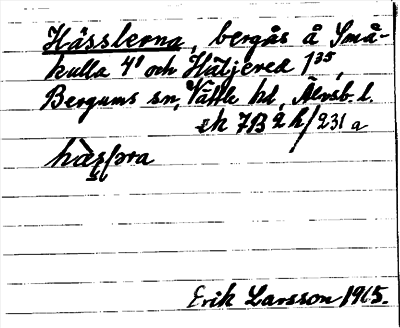 Hässlerna, bergås å Små-
kulla 4⁸ och Häljered 1³⁵,
Bergums sn, Vättle hd, Älvsb. l.
ek 7B 2h/231a
hàsʃṇa
Erik Larsson 1965.